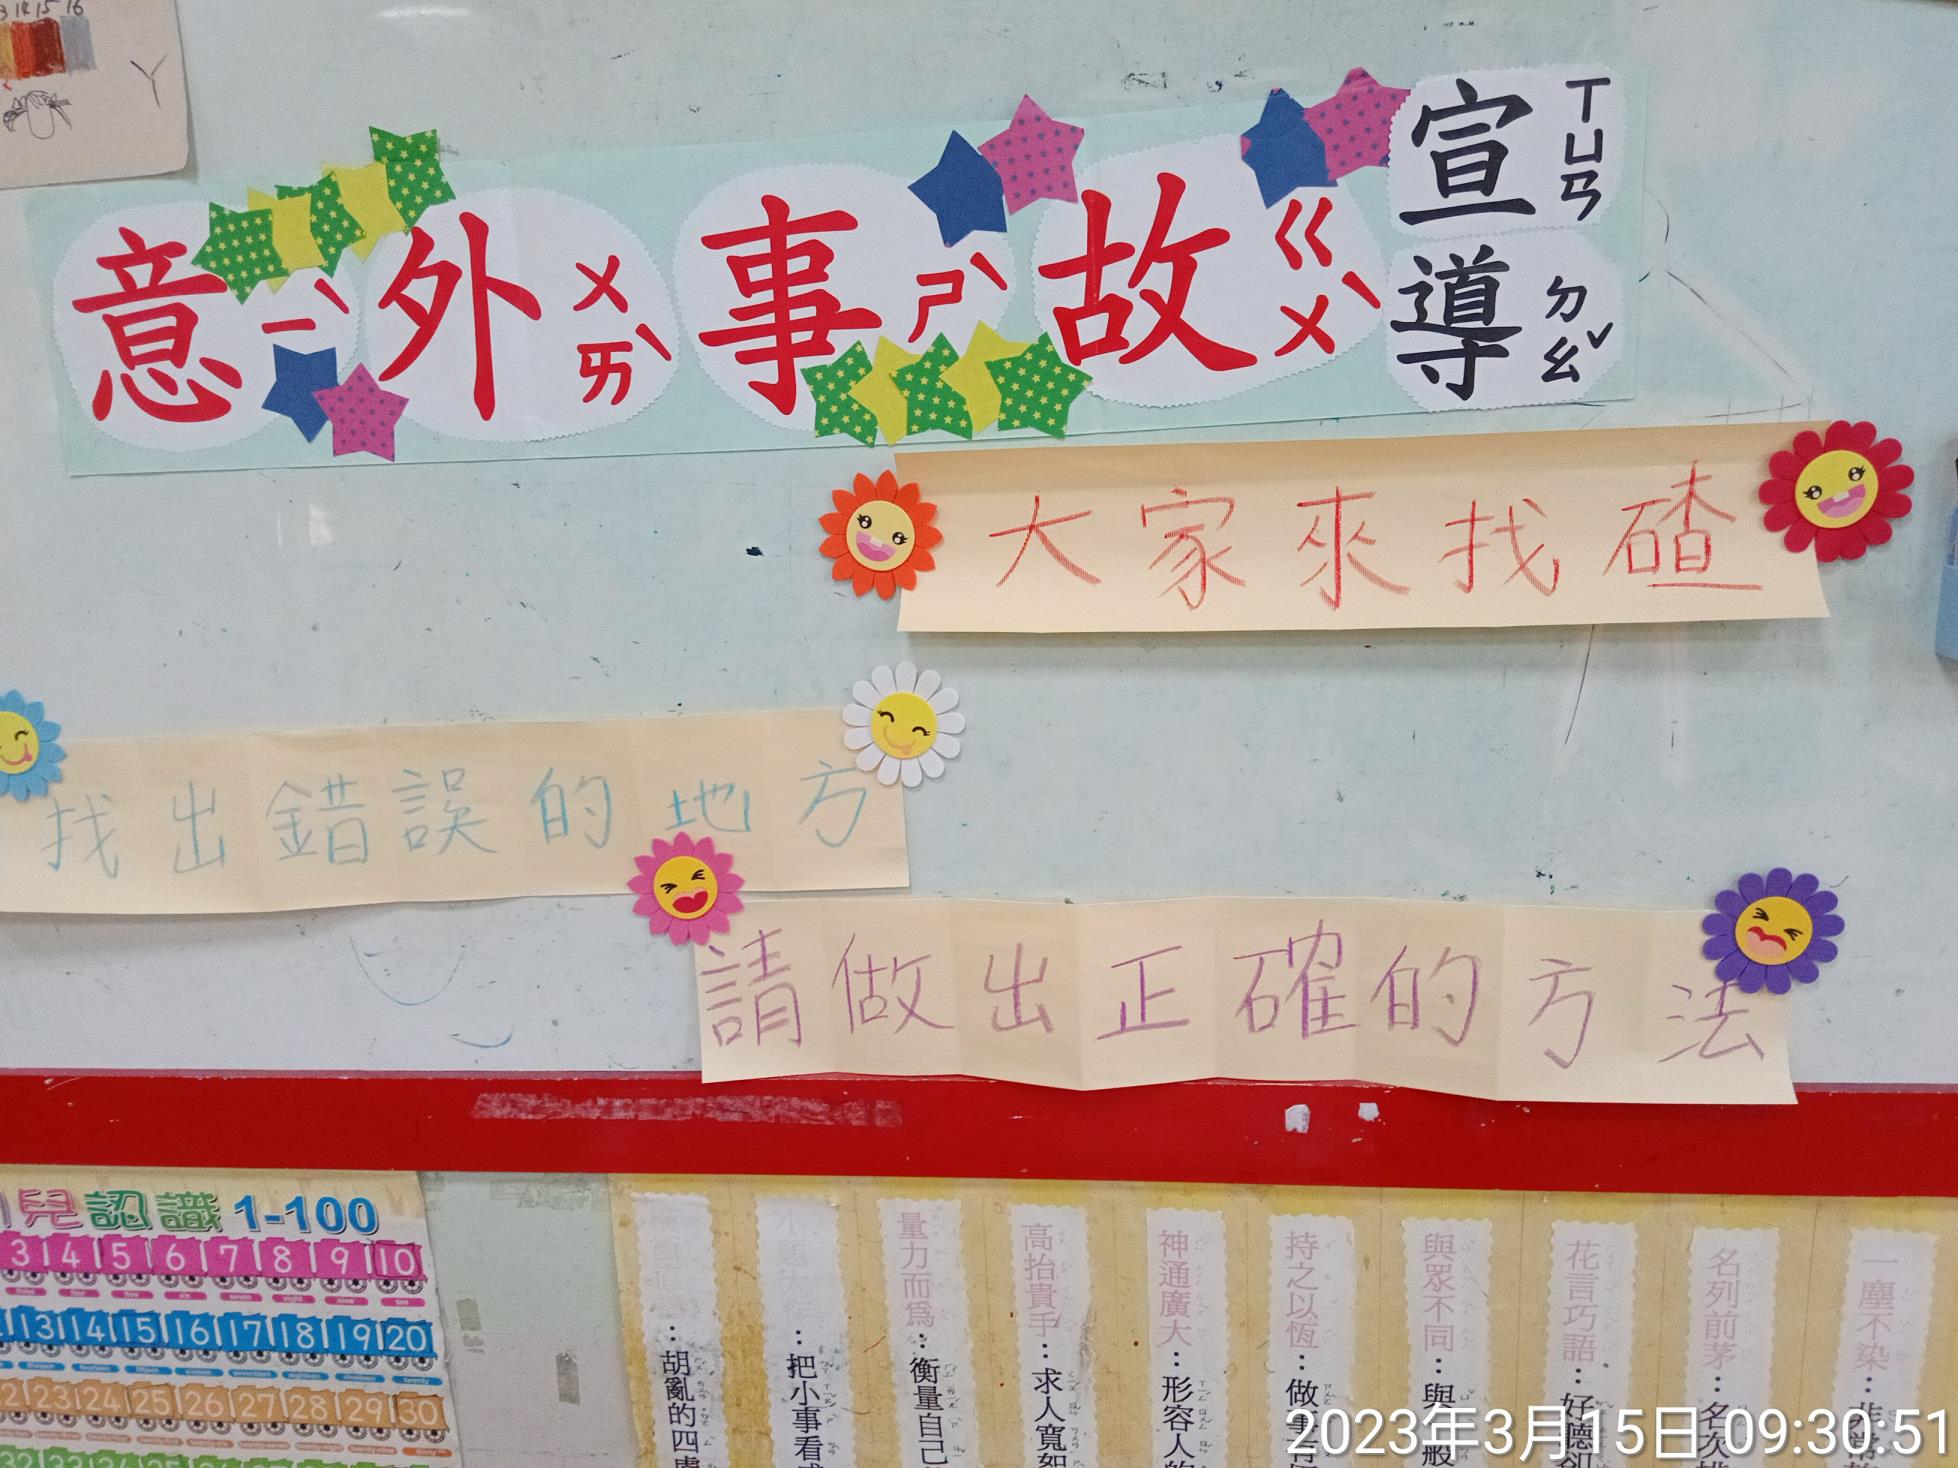 13 14 15 16
Y
意ㄧˋ外ㄨㄞˋ事ㄕˋ故ㄍㄨˋ
宣ㄒㄩㄢ
導ㄉㄠˇ
大家來找碴
找出錯誤的地方
請做出正確的方法
兒認識 1-100
3 4 5 6 7 8 9 10
three four five six seven eight nine ten
13 14 15 16 17 18 19 20
23 24 25 26 27 28 29 30
32 33 34 35
：胡亂的四處
：把小事看
量力而為：衡量自己
高抬貴手：求人寬恕
神通廣大：形容人的
持之以恆：做事有
與眾不同：與
花言巧語：好
名列前茅：名次
一塵不染：非常
2023年3月15日 09:30:51